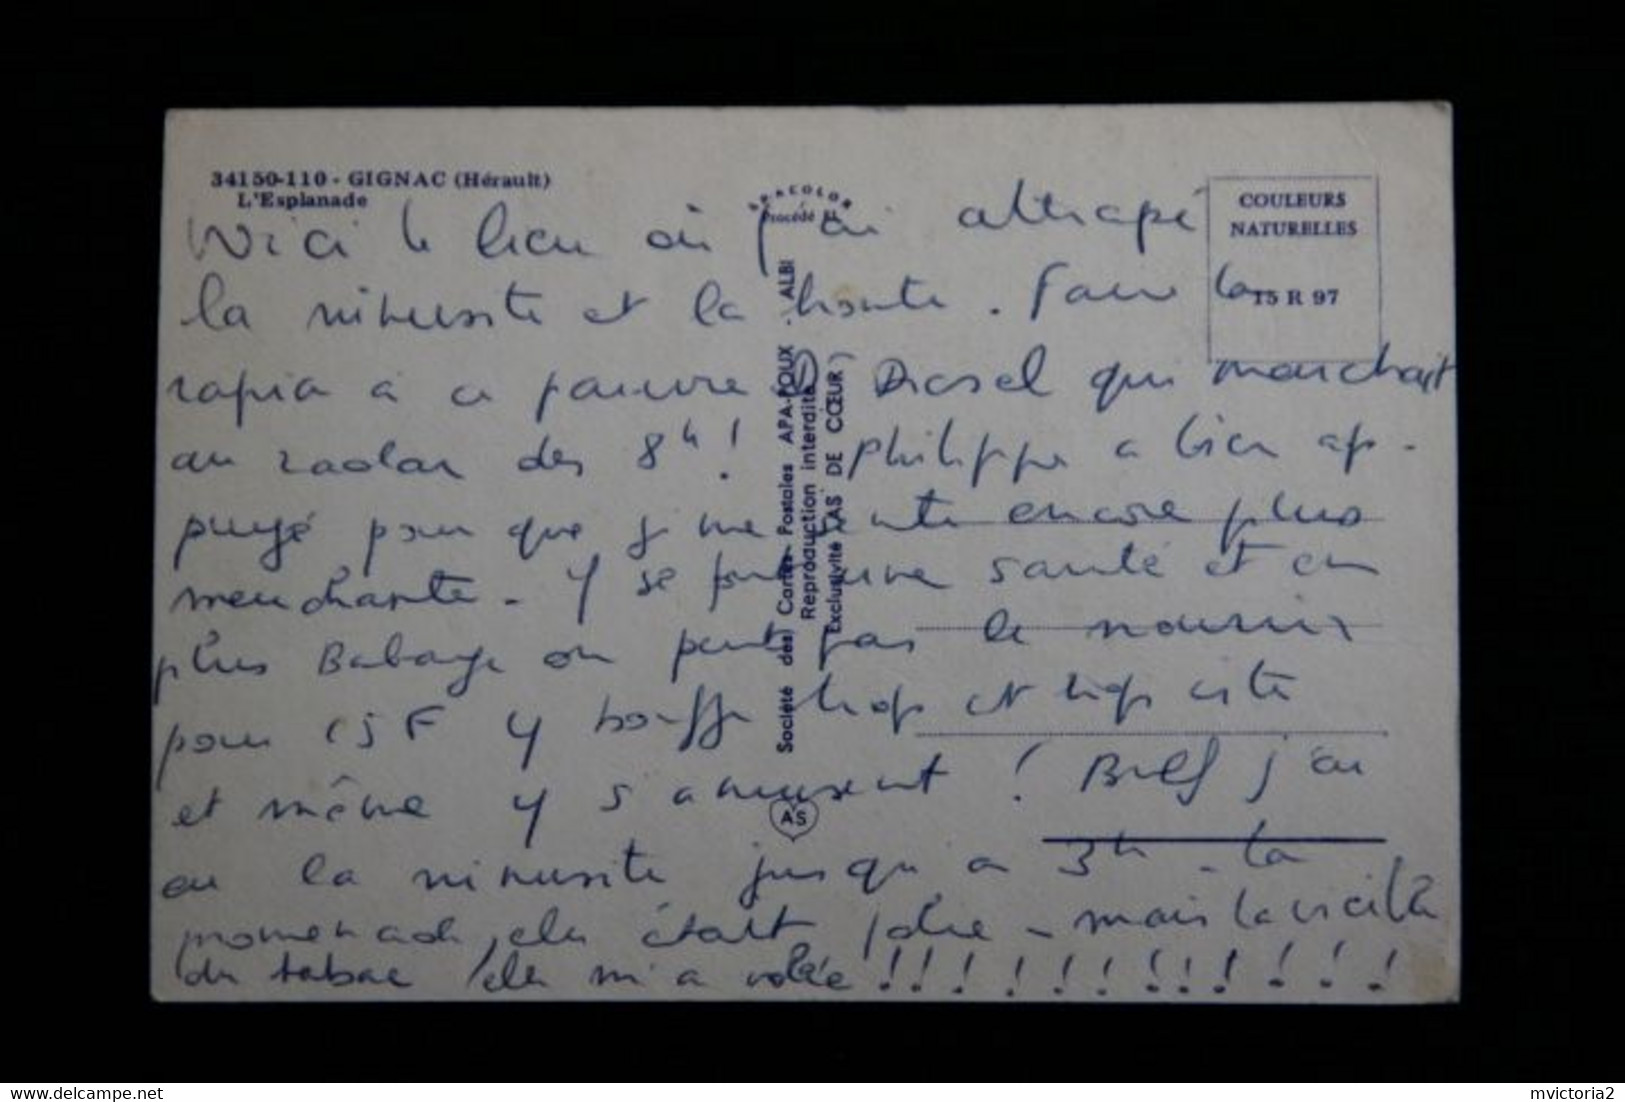 34150-110 - GIGNAC (Hérault)
L'Esplanade
APACOLOR
Procédé
COULEURS
NATURELLES
15 R 97
Société des Cartes Postales APA-POUX ALBI
Reproduction interdite
Exclusivité "AS DE CŒUR"
AS
Voici le lieu où j'ai attrapé
la sinusite et la honte. Faire la
rapia à ce pauvre Drosel qui marchait
au radar des 8h! Philippe a bien ap-
puyé pour que j me sente encore plus
méchante. Y se font une santé et en
plus on peut pas le nourrir
pour 15F y bouffe hop et hop vite
et même y s'amusent! Bref j'ai
eu la sinusite jusqu'à 3h - la
promenade, elle était jolie - mais la vieille
du tabac, elle m'a volée!!!!!!!!!!!!!
delcampe.net
mvictoria2